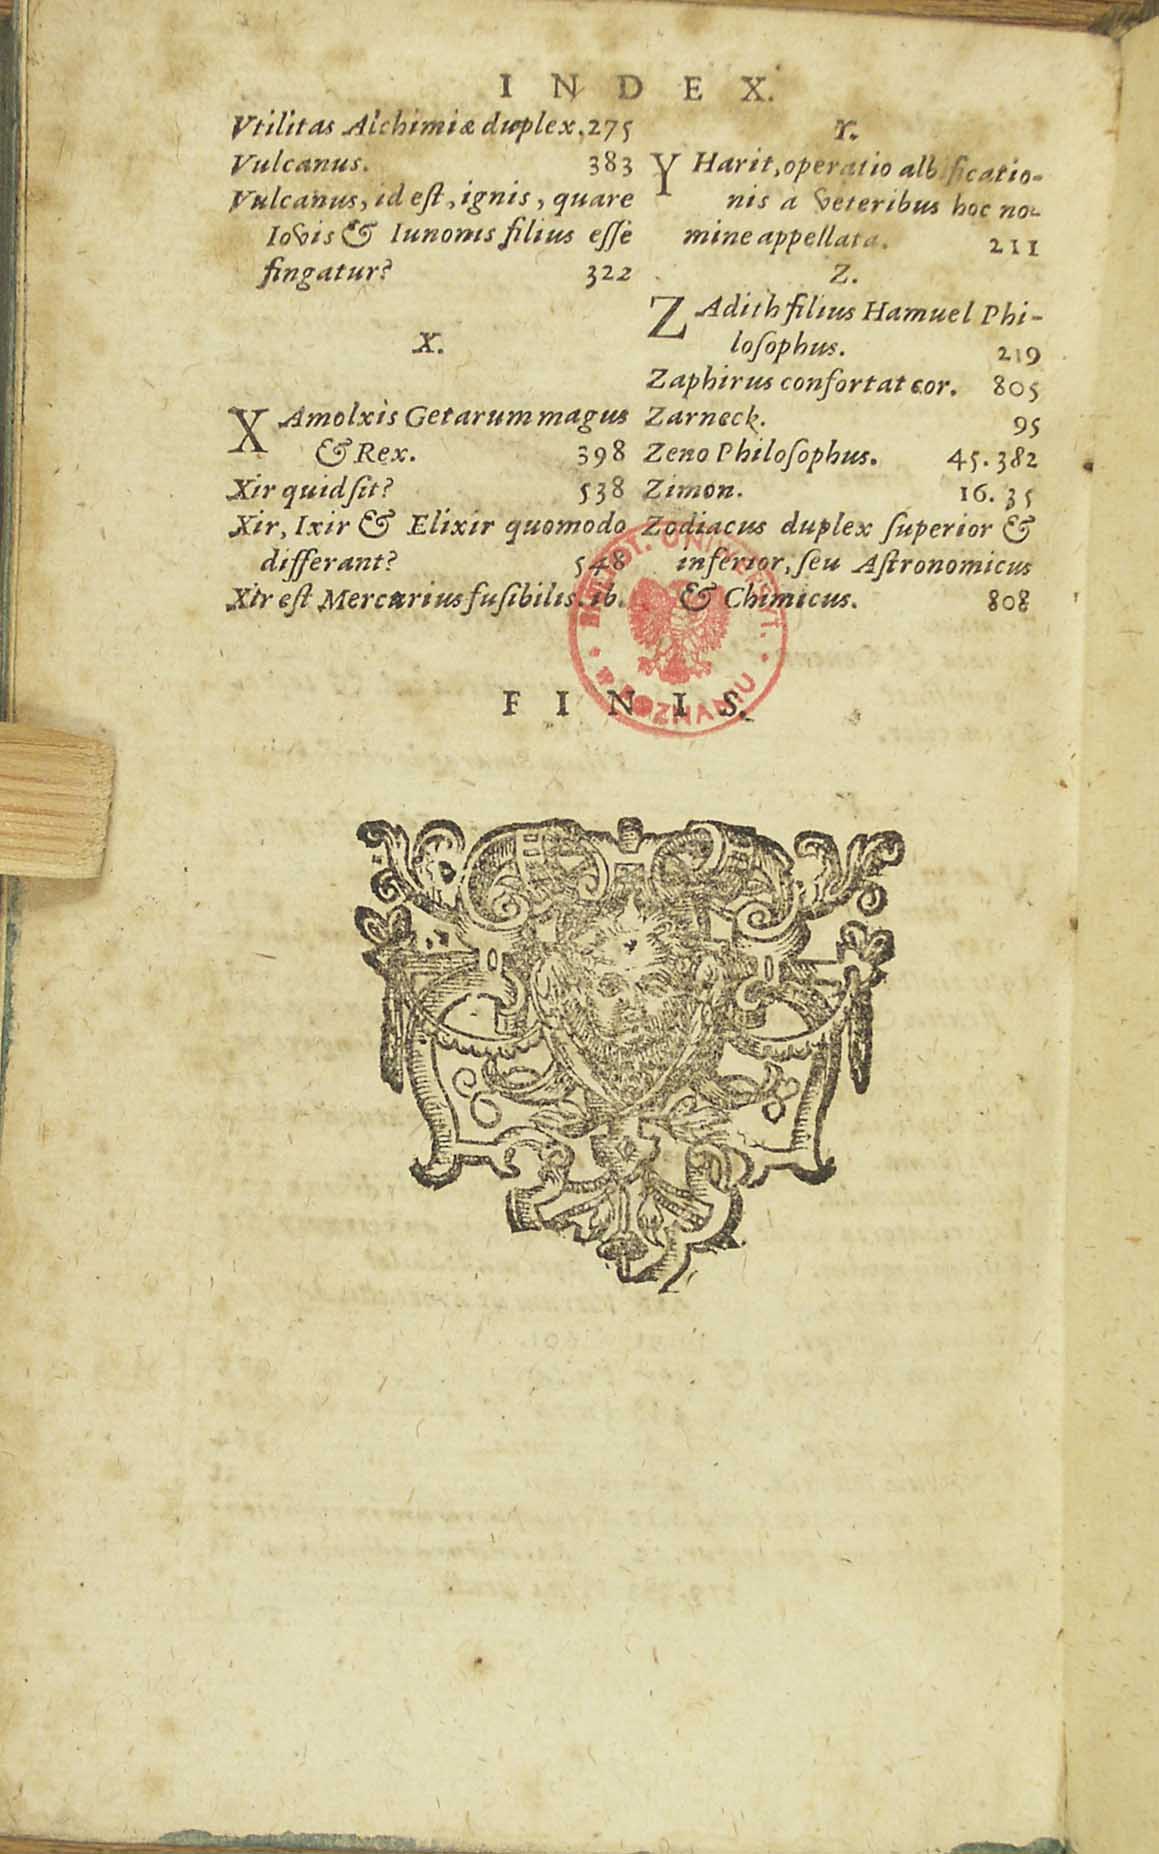 INDEX.
Vtilitas Alchimiæ duplex. 275
Vulcanus. 383
Vulcanus, id eſt, ignis, quare
Iovis & Iunonis filius eſſe
fingatur? 322
X.
XAmolxis Getarum magus
& Rex. 398
Xir quid ſit? 538
Xir, Ixir & Elixir quomodo
differant? 548
Xir eſt Mercurius fuſibilis. ib.
Y.
YHarit, operatio albificatio-
nis a veteribus hoc no-
mine appellata. 211
Z.
ZAdith filius Hamuel Phi-
loſophus. 219
Zaphirus confortat cor. 805
Zarneck. 95
Zeno Philoſophus. 45. 382
Zimon. 16. 35
Zodiacus duplex ſuperior &
inferior, ſeu Aſtronomicus
& Chimicus. 808
FINIS.
BIBLIOT. UNIWERSYT.
W POZNANIU